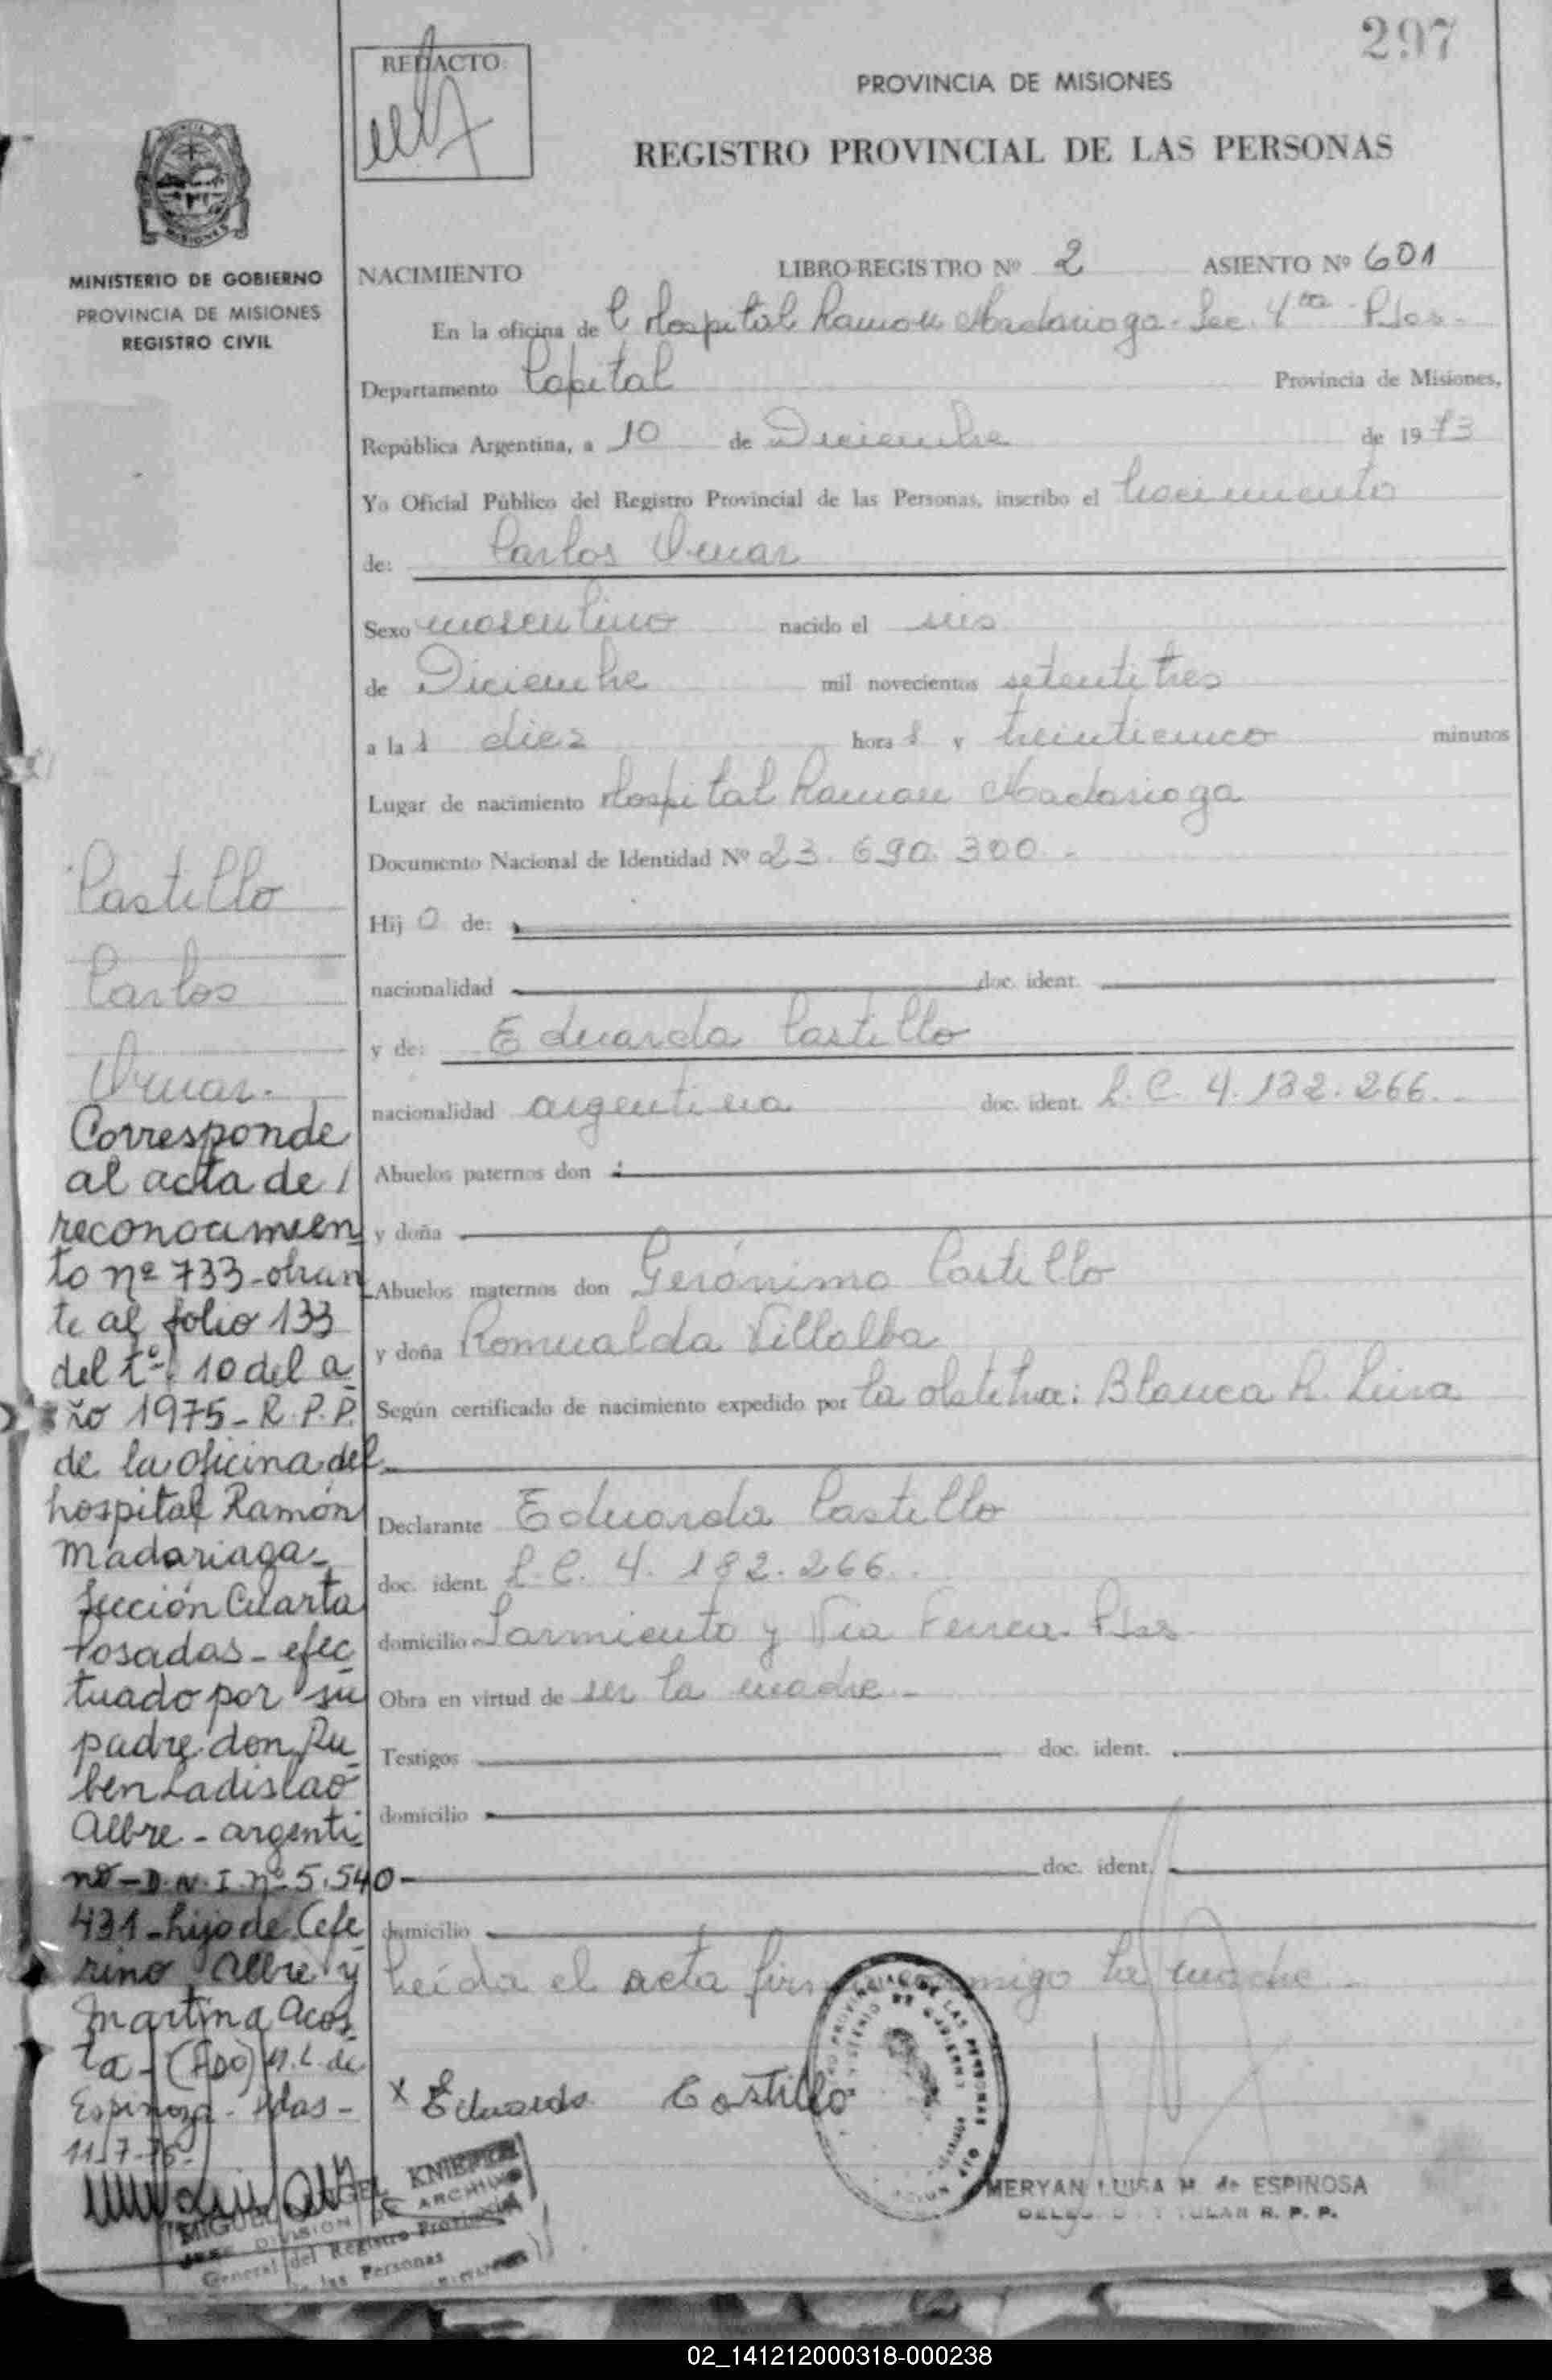 297
REDACTO:
PROVINCIA DE MISIONES
REGISTRO PROVINCIAL DE LAS PERSONAS
MISIONES
MINISTERIO DE GOBIERNO
PROVINCIA DE MISIONES
REGISTRO CIVIL
NACIMIENTO LIBRO-REGISTRO Nº 2 ASIENTO Nº 601
En la oficina de Hospital Ramon Madariaga - Sec. 4ta - Pdas -
Departamento Capital Provincia de Misiones,
República Argentina, a 10 de Diciembre de 1973
Yo Oficial Público del Registro Provincial de las Personas, inscribo el nacimiento
de: Carlos Omar
Sexo masculino nacido el seis
de Diciembre mil novecientos setentitres
a las diez horas y treinticinco minutos
Lugar de nacimiento Hospital Ramon Madariaga
Documento Nacional de Identidad Nº 23.690.300 -
Hijo de:
nacionalidad doc. ident.
y de: Eduarda Castillo
nacionalidad argentina doc. ident. L.C. 4.182.266 -
Abuelos paternos don
y doña
Abuelos maternos don Gerónimo Castillo
y doña Romualda Villalba
Según certificado de nacimiento expedido por la obstetra: Blanca R.
Declarante Eduarda Castillo
doc. ident. L.C. 4.182.266
domicilio Sarmiento y Via Ferrea - Pdas
Obra en virtud de ser la madre -
Testigos doc. ident.
domicilio
doc. ident.
domicilio
Leída el acta la madre -
x Eduarda Castillo
MERYAN LUISA M. de ESPINOSA
R. P. P.
Castillo
Carlos
Omar.
Corresponde
al acta de /
reconocimien
to nº 733-obran
te al folio 133
del tº 10 del a
ño 1975- R.P.P.
de la oficina del
hospital Ramón
Madariaga-
Sección Cuarta
Posadas - efec
tuado por su
padre don Ru
ben Ladislao
Albre - argenti
no - D.N.I. nº 5.540
431 - hijo de Cefe
rino Albre y
Martina Acos
ta - (FDO) M.L. de
Espinoza - Pdas -
11-7-75-
MIGUEL ANGEL
JEFE DIVISION DE ARCHIVO
General del Registro Provincial
de las Personas
02_141212000318-000238